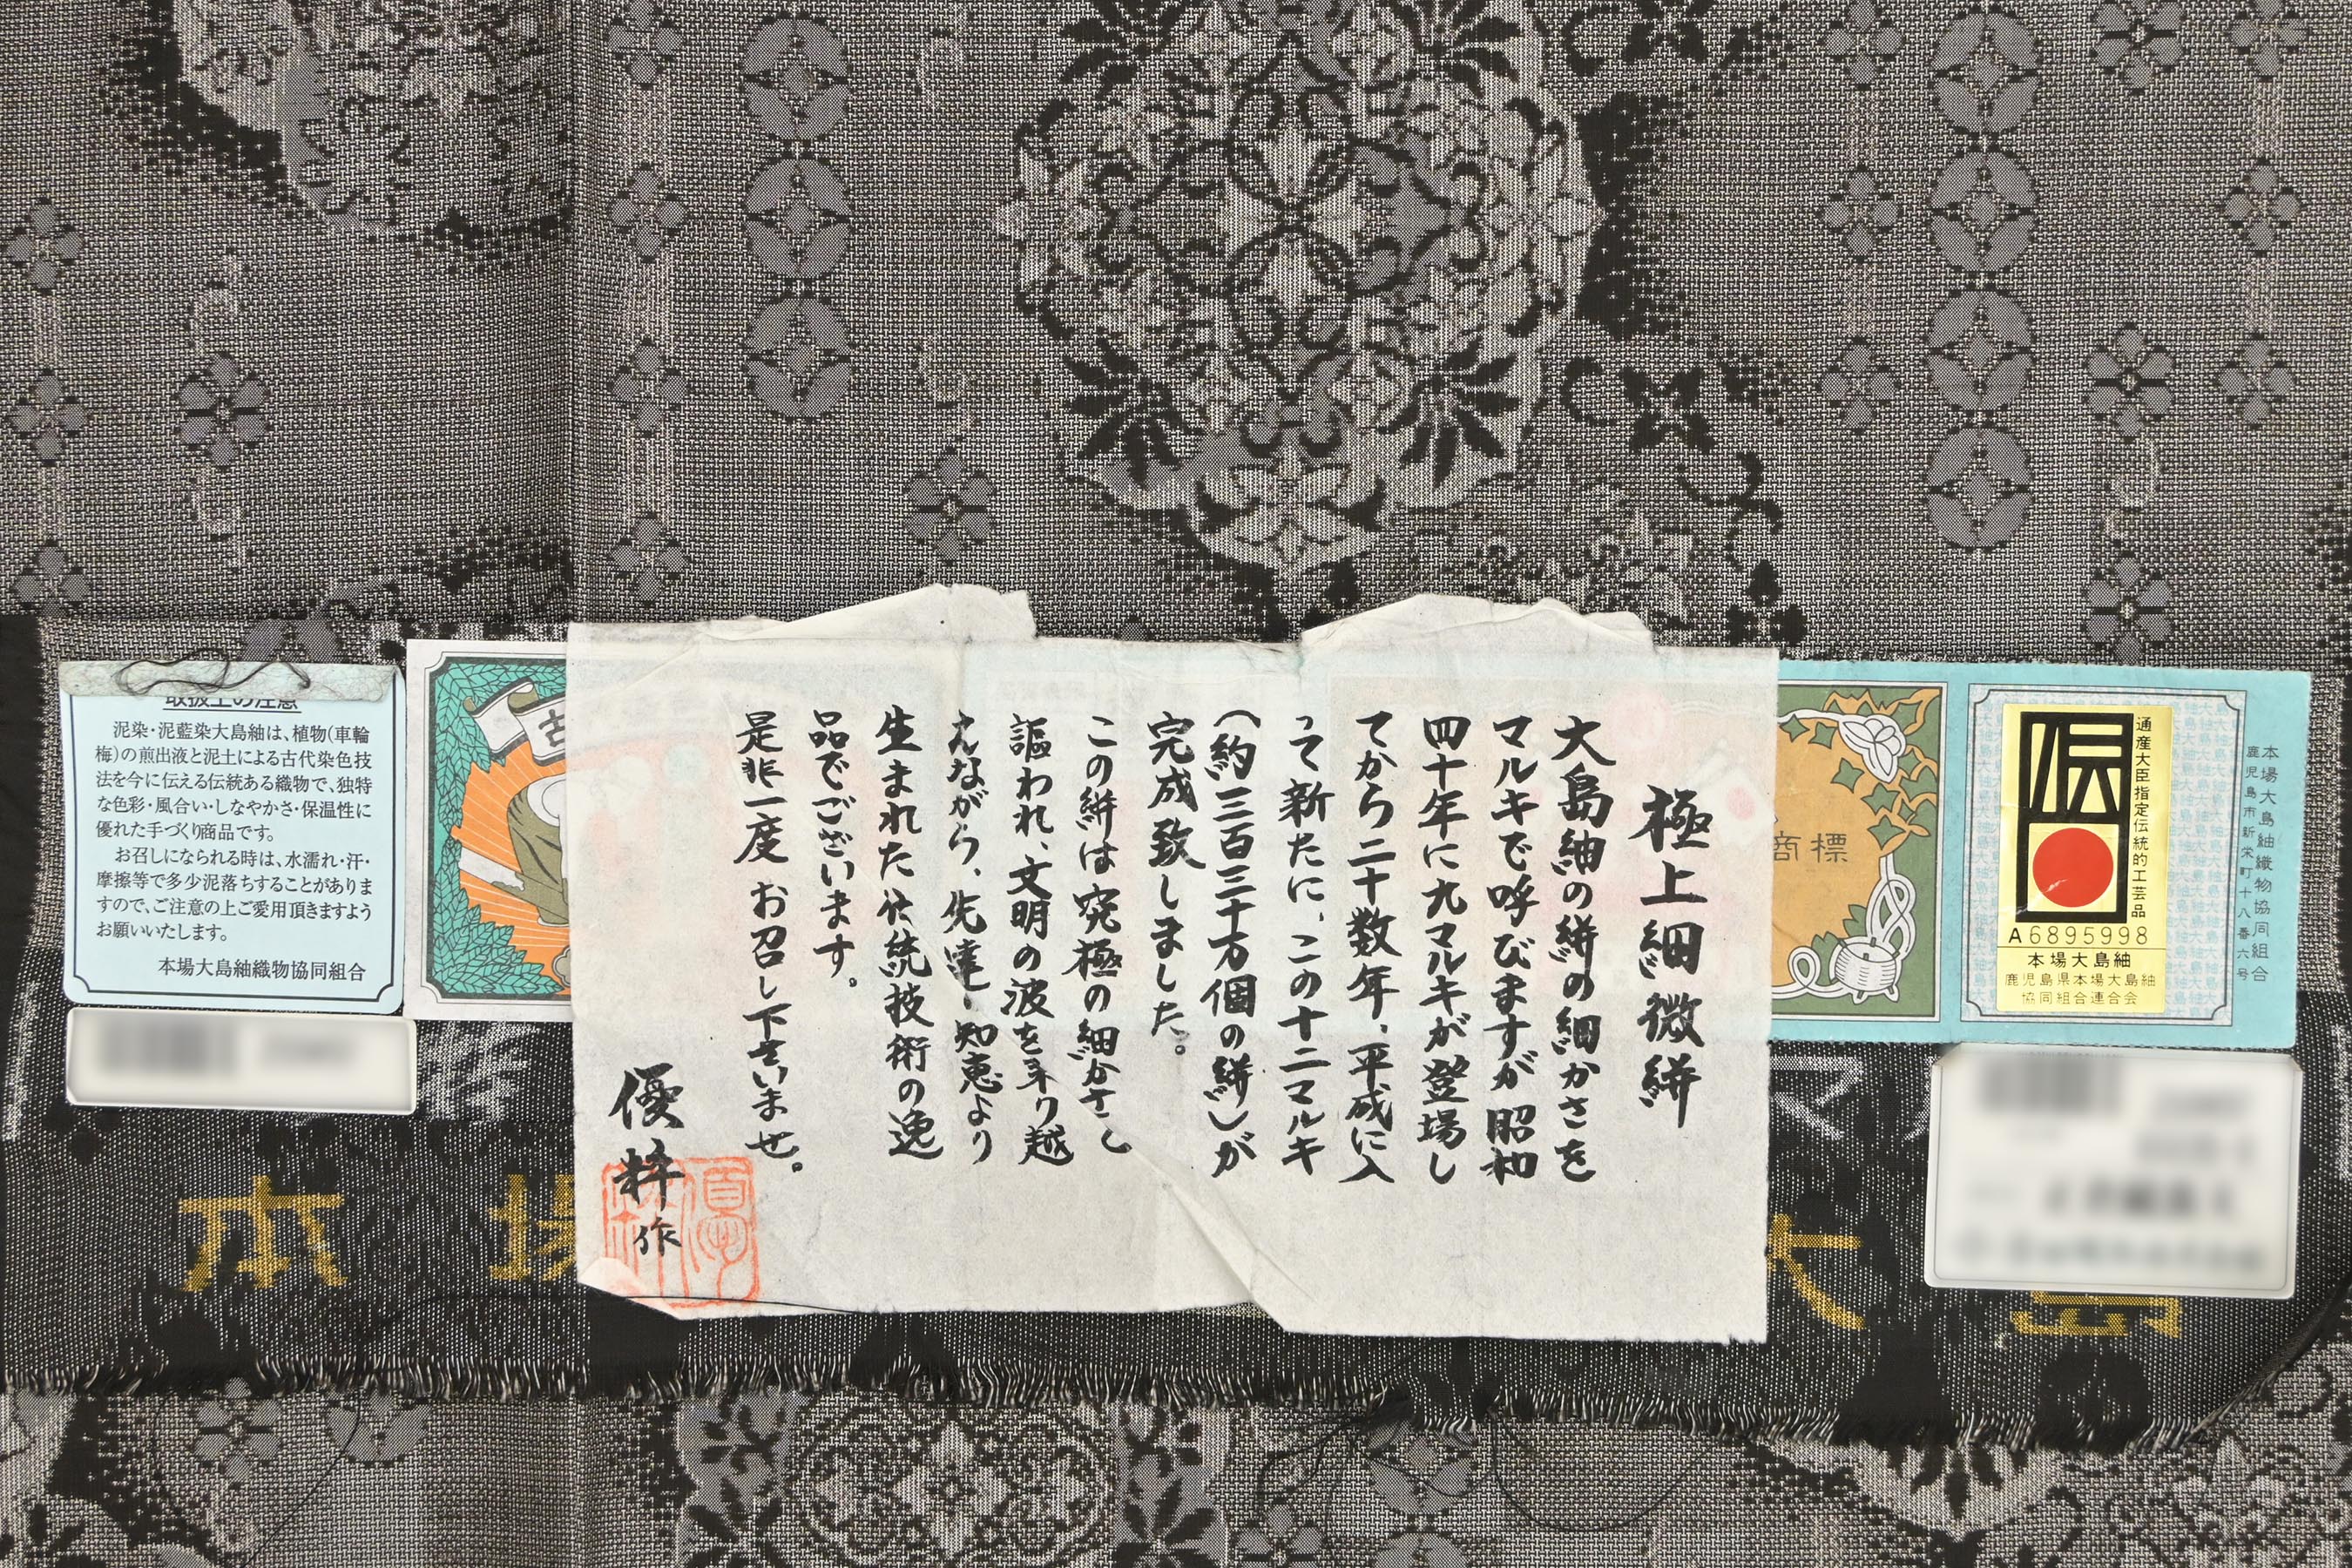 極上細微絣
大島紬の絣の細かさを
マルキで呼びますが昭和
四十年に九マルキが登場し
てから二十数年、平成に入
って新たに、この十二マルキ
(約三百三十万個の絣)が
完成致しました。
この絣は究極の細かさと
謳われ、文明の波を乗り越
えながら、先達の知恵より
生まれた伝統技術の逸
品でございます。
是非一度お召し下さいませ。
優粋作
取扱上の注意
泥染・泥藍染大島紬は、植物(車輪
梅)の煎出液と泥土による古代染色技
法を今に伝える伝統ある織物で、独特
な色彩・風合い・しなやかさ・保温性に
優れた手づくり商品です。
お召しになられる時は、水濡れ・汗・
摩擦等で多少泥落ちすることがありま
すので、ご注意の上ご愛用頂きますよう
お願いいたします。
本場大島紬織物協同組合
古
商標
伝
通産大臣指定伝統的工芸品
A6895998
本場大島紬
鹿児島県本場大島紬
協同組合連合会
本場大島紬織物協同組合
鹿児島市新栄町十八番六号
マ
本場
大島